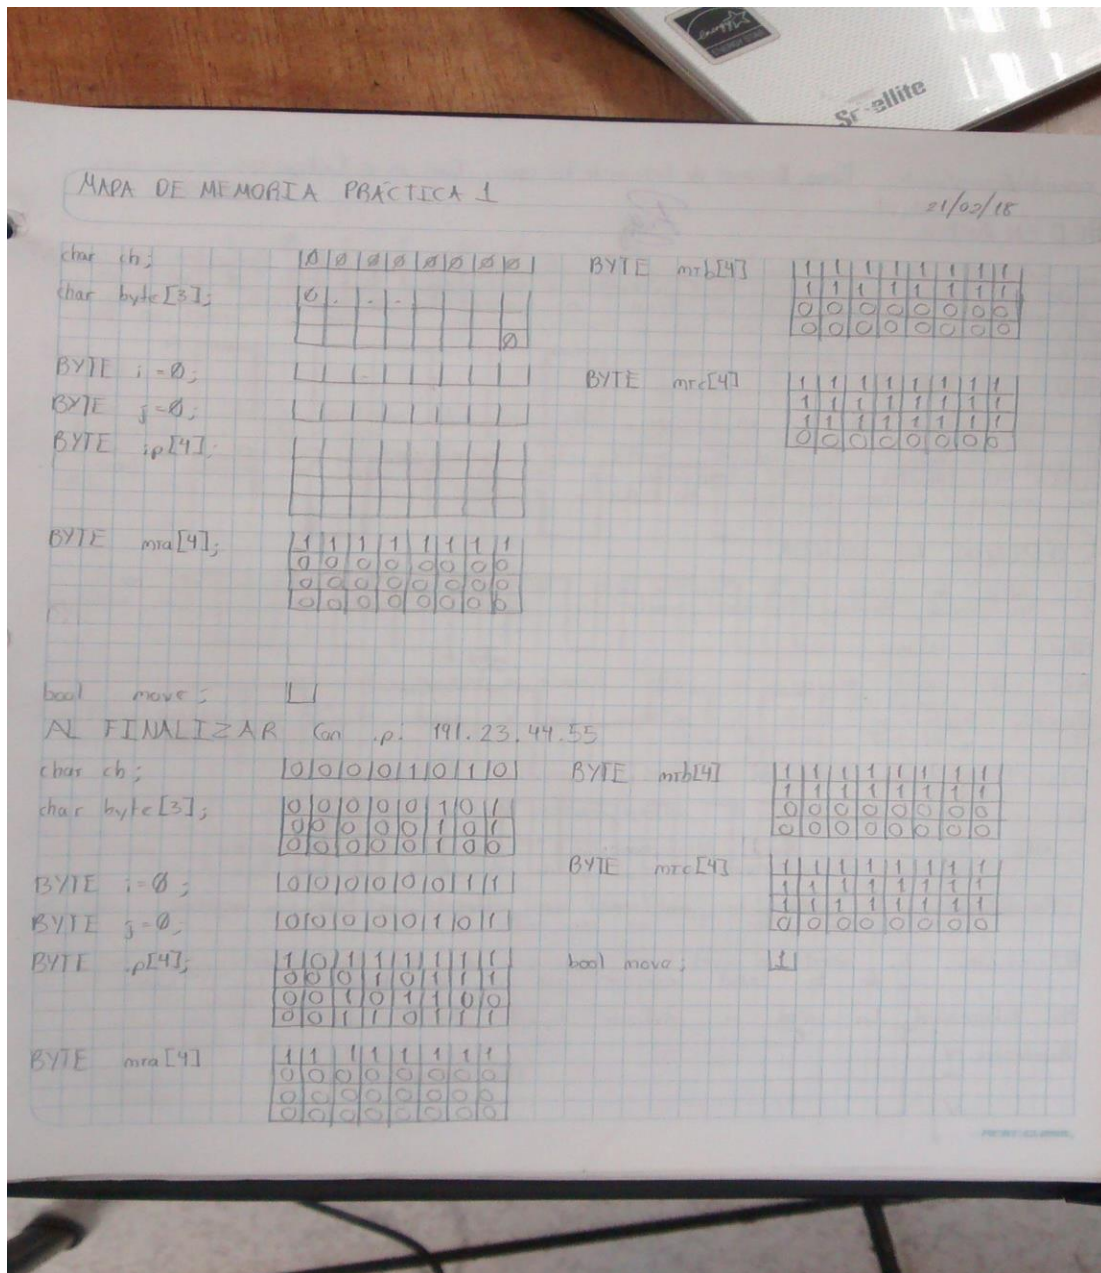 Satellite
MAPA DE MEMORIA PRÁCTICA 1
21/02/18
char ch; |0|0|0|0|0|0|0|0|
char byte[3]; 0 . . .
0
BYTE i=0;
BYTE j=0;
BYTE ip[4];
BYTE mra[4]; 1 1 1 1 1 1 1 1
0 0 0 0 0 0 0 0
0 0 0 0 0 0 0 0
0 0 0 0 0 0 0 0
BYTE mrb[4] 1 1 1 1 1 1 1 1
1 1 1 1 1 1 1 1
0 0 0 0 0 0 0 0
0 0 0 0 0 0 0 0
BYTE mrc[4] 1 1 1 1 1 1 1 1
1 1 1 1 1 1 1 1
1 1 1 1 1 1 1 1
0 0 0 0 0 0 0 0
bool move;
AL FINALIZAR Con ip: 191.23.44.55
char ch; 0 0 0 0 1 0 1 0
char byte[3]; 0 0 0 0 0 1 0 1
0 0 0 0 0 1 0 1
0 0 0 0 0 1 0 0
BYTE i=0; 0 0 0 0 0 0 1 1
BYTE j=0; 0 0 0 0 0 1 0 1
BYTE ip[4]; 1 0 1 1 1 1 1 1
0 0 0 1 0 1 1 1
0 0 1 0 1 1 0 0
0 0 1 1 0 1 1 1
BYTE mra[4] 1 1 1 1 1 1 1 1
0 0 0 0 0 0 0 0
0 0 0 0 0 0 0 0
0 0 0 0 0 0 0 0
BYTE mrb[4] 1 1 1 1 1 1 1 1
1 1 1 1 1 1 1 1
0 0 0 0 0 0 0 0
0 0 0 0 0 0 0 0
BYTE mrc[4] 1 1 1 1 1 1 1 1
1 1 1 1 1 1 1 1
1 1 1 1 1 1 1 1
0 0 0 0 0 0 0 0
bool move; 1